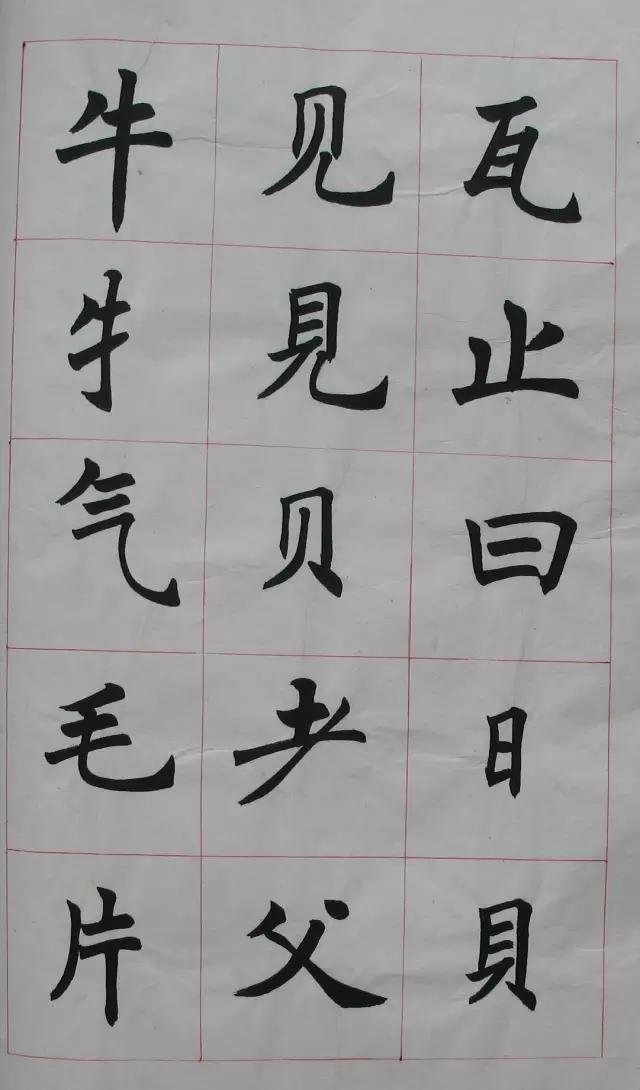 瓦止曰日貝
见見贝耂父
牛牜气毛片